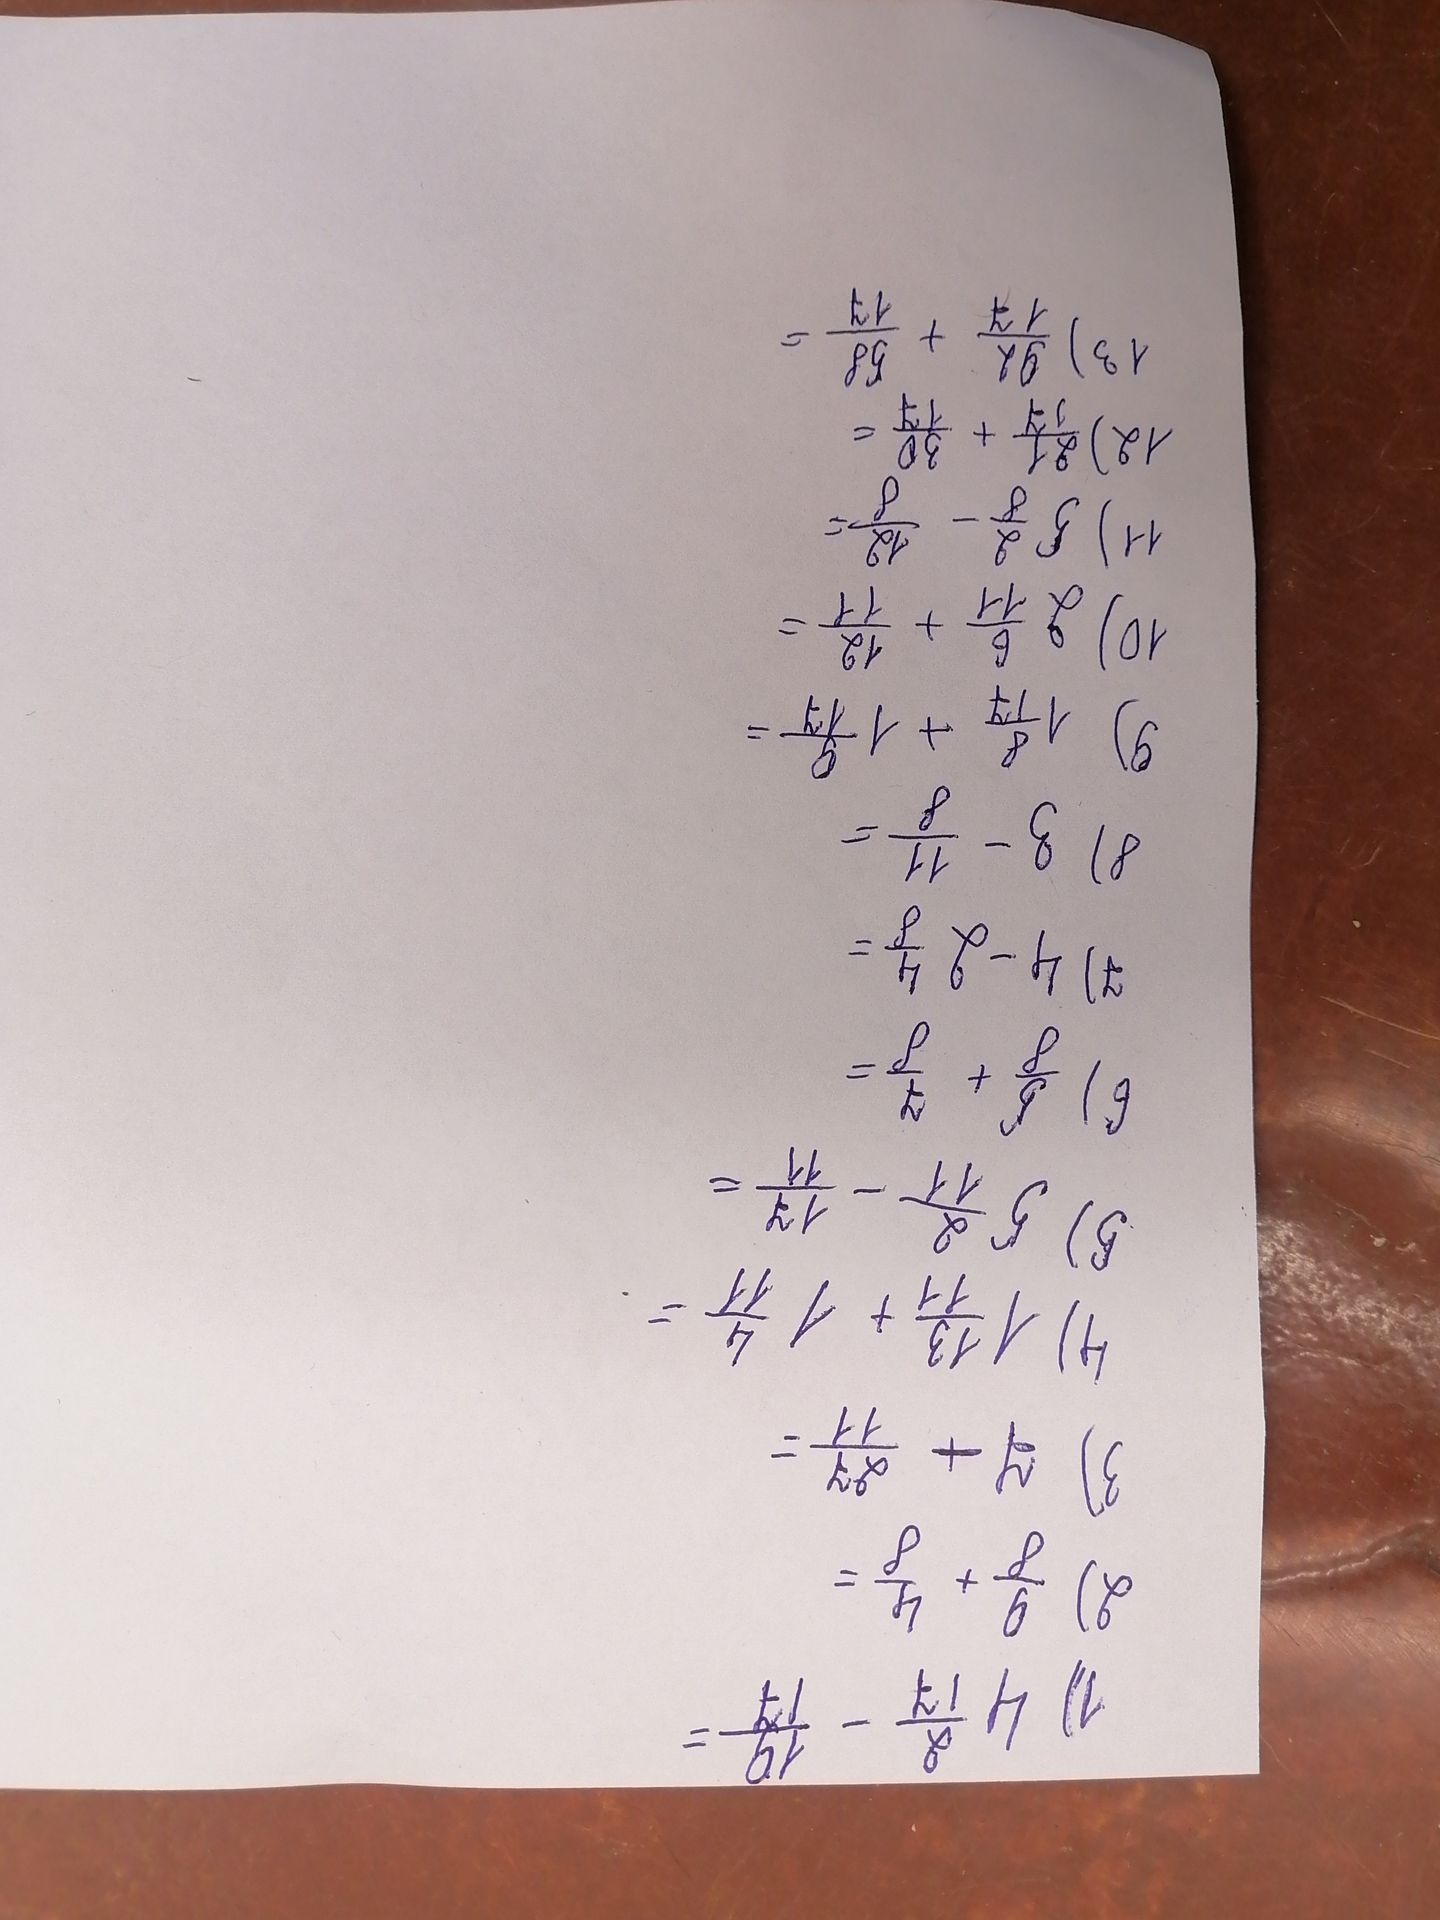 1) 4 2/17 - 19/17 =
2) 9/8 + 4/8 =
3) 7 + 27/11 =
4) 1 13/11 + 1 4/11 =
5) 5 2/11 - 17/11 =
6) 5/8 + 7/8 =
7) 4 - 2 4/8 =
8) 3 - 11/8 =
9) 1 8/17 + 1 9/17 =
10) 2 6/11 + 12/11 =
11) 5 2/8 - 12/8 =
12) 21/17 + 30/17 =
13) 92/17 + 58/17 =